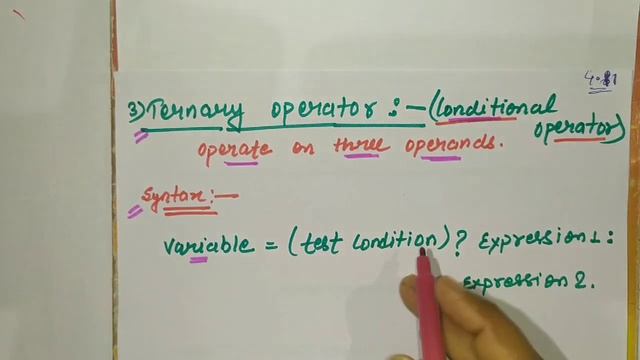 3) Ternary operator :- (Conditional
operator)
operate on three operands.
Syntax:-
variable = (test condition) ? Expression 1 :
Expression 2.